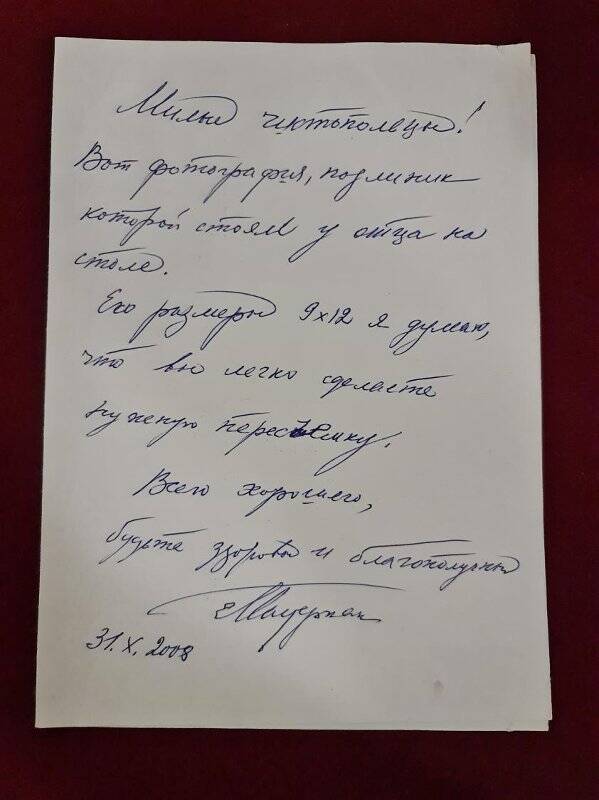 Милые чистополецы!
Вот фотография, подлиник
которой стоял у отца на
столе.
Его размеры 9x12 я думаю,
что вы легко сделаете
нужную пересъемку.
Всего хорошего,
будьте здоровы и благополучны
31.X.2008